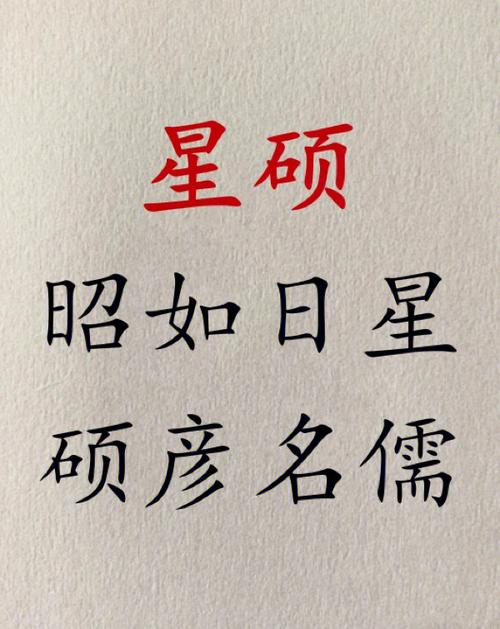 星硕
昭如日星
硕彦名儒